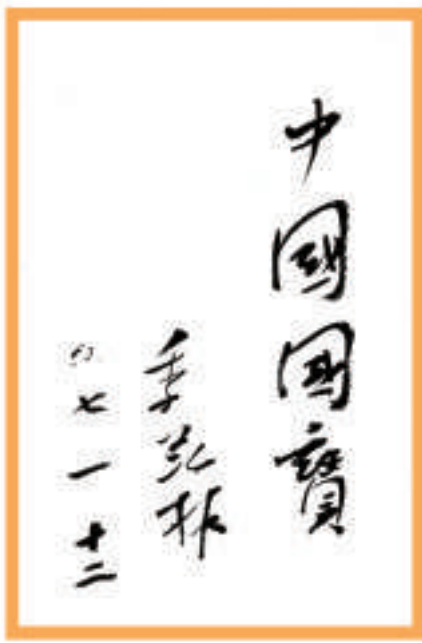 中國國寶
季羡林
〇七 一 十二